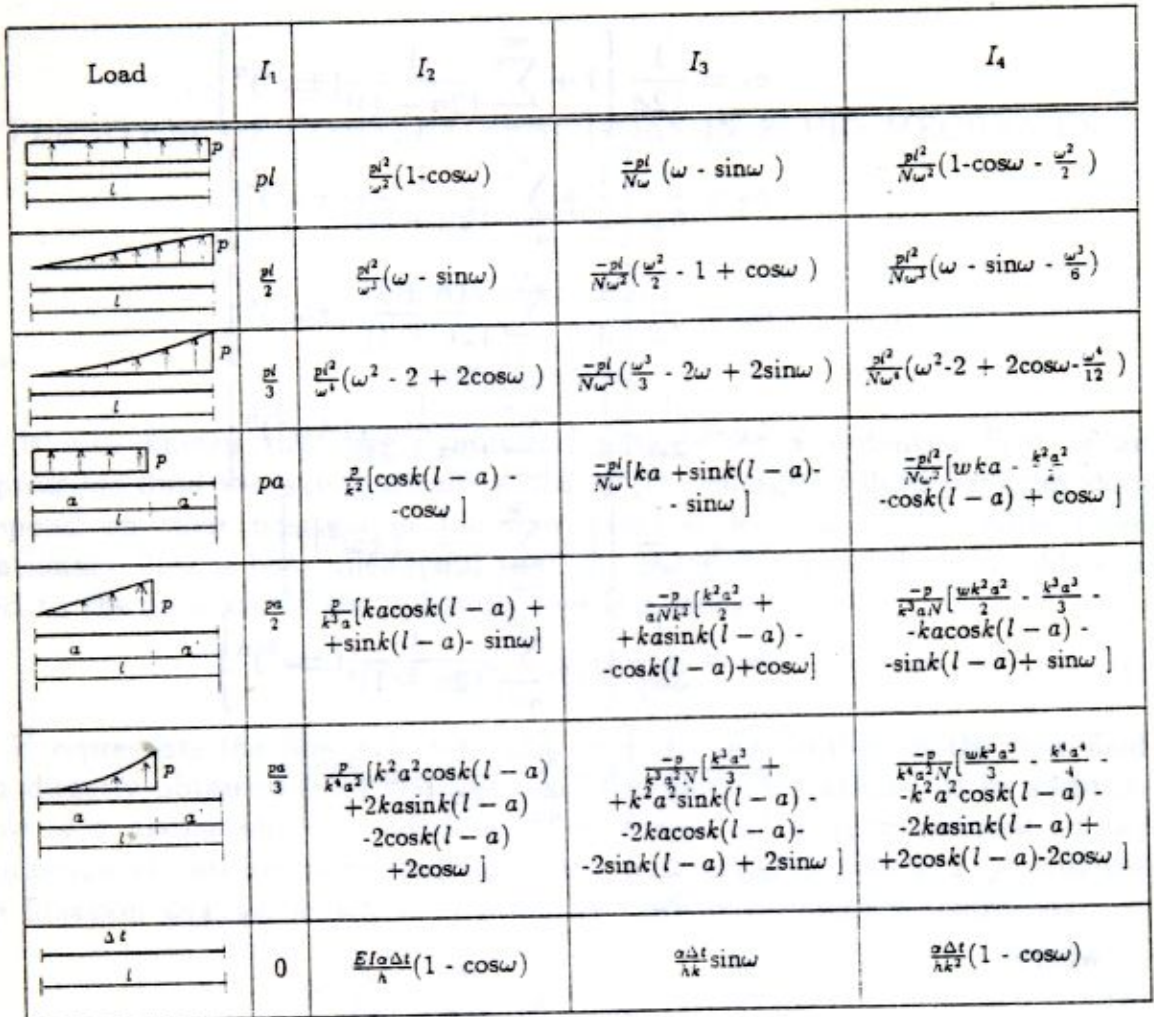 Load I₁ I₂ I₃ I₄
p
l
pl
pl²/ω² (1-cosω)
-pl/Nω (ω - sinω )
pl²/Nω² (1-cosω - ω²/2 )
p
l
pl/2
pl²/ω³ (ω - sinω)
-pl/Nω² (ω²/2 - 1 + cosω )
pl²/Nω³ (ω - sinω - ω³/6)
p
l
pl/3
pl²/ω⁴ (ω² - 2 + 2cosω )
-pl/Nω³ (ω³/3 - 2ω + 2sinω )
pl²/Nω⁴ (ω²-2 + 2cosω-ω⁴/12 )
p
a a
l
pa
p/k² [cosk(l − a) -
-cosω ]
-pl/Nω [ka +sink(l − a)-
- sinω ]
-pl²/Nω² [wka - k²a²/2
-cosk(l − a) + cosω ]
p
a a
l
pa/2
p/k³a [kacosk(l − a) +
+sink(l − a)- sinω]
-p/aNk² [k²a²/2 +
+kasink(l − a) -
-cosk(l − a)+cosω]
-p/k³aN [wk²a²/2 - k³a³/3 -
-kacosk(l − a) -
-sink(l − a)+ sinω ]
p
a a
l
pa/3
p/k⁴a² [k²a²cosk(l − a)
+2kasink(l − a)
-2cosk(l − a)
+2cosω ]
-p/k³a²N [k³a³/3 +
+k²a²sink(l − a) -
-2kacosk(l − a)-
-2sink(l − a) + 2sinω ]
-p/k⁴a²N [wk³a³/3 - k⁴a⁴/4 -
-k²a²cosk(l − a) -
-2kasink(l − a) +
+2cosk(l − a)-2cosω ]
Δt
l
0
EIαΔt/h (1 - cosω)
αΔt/hk sinω
αΔt/hk² (1 - cosω)